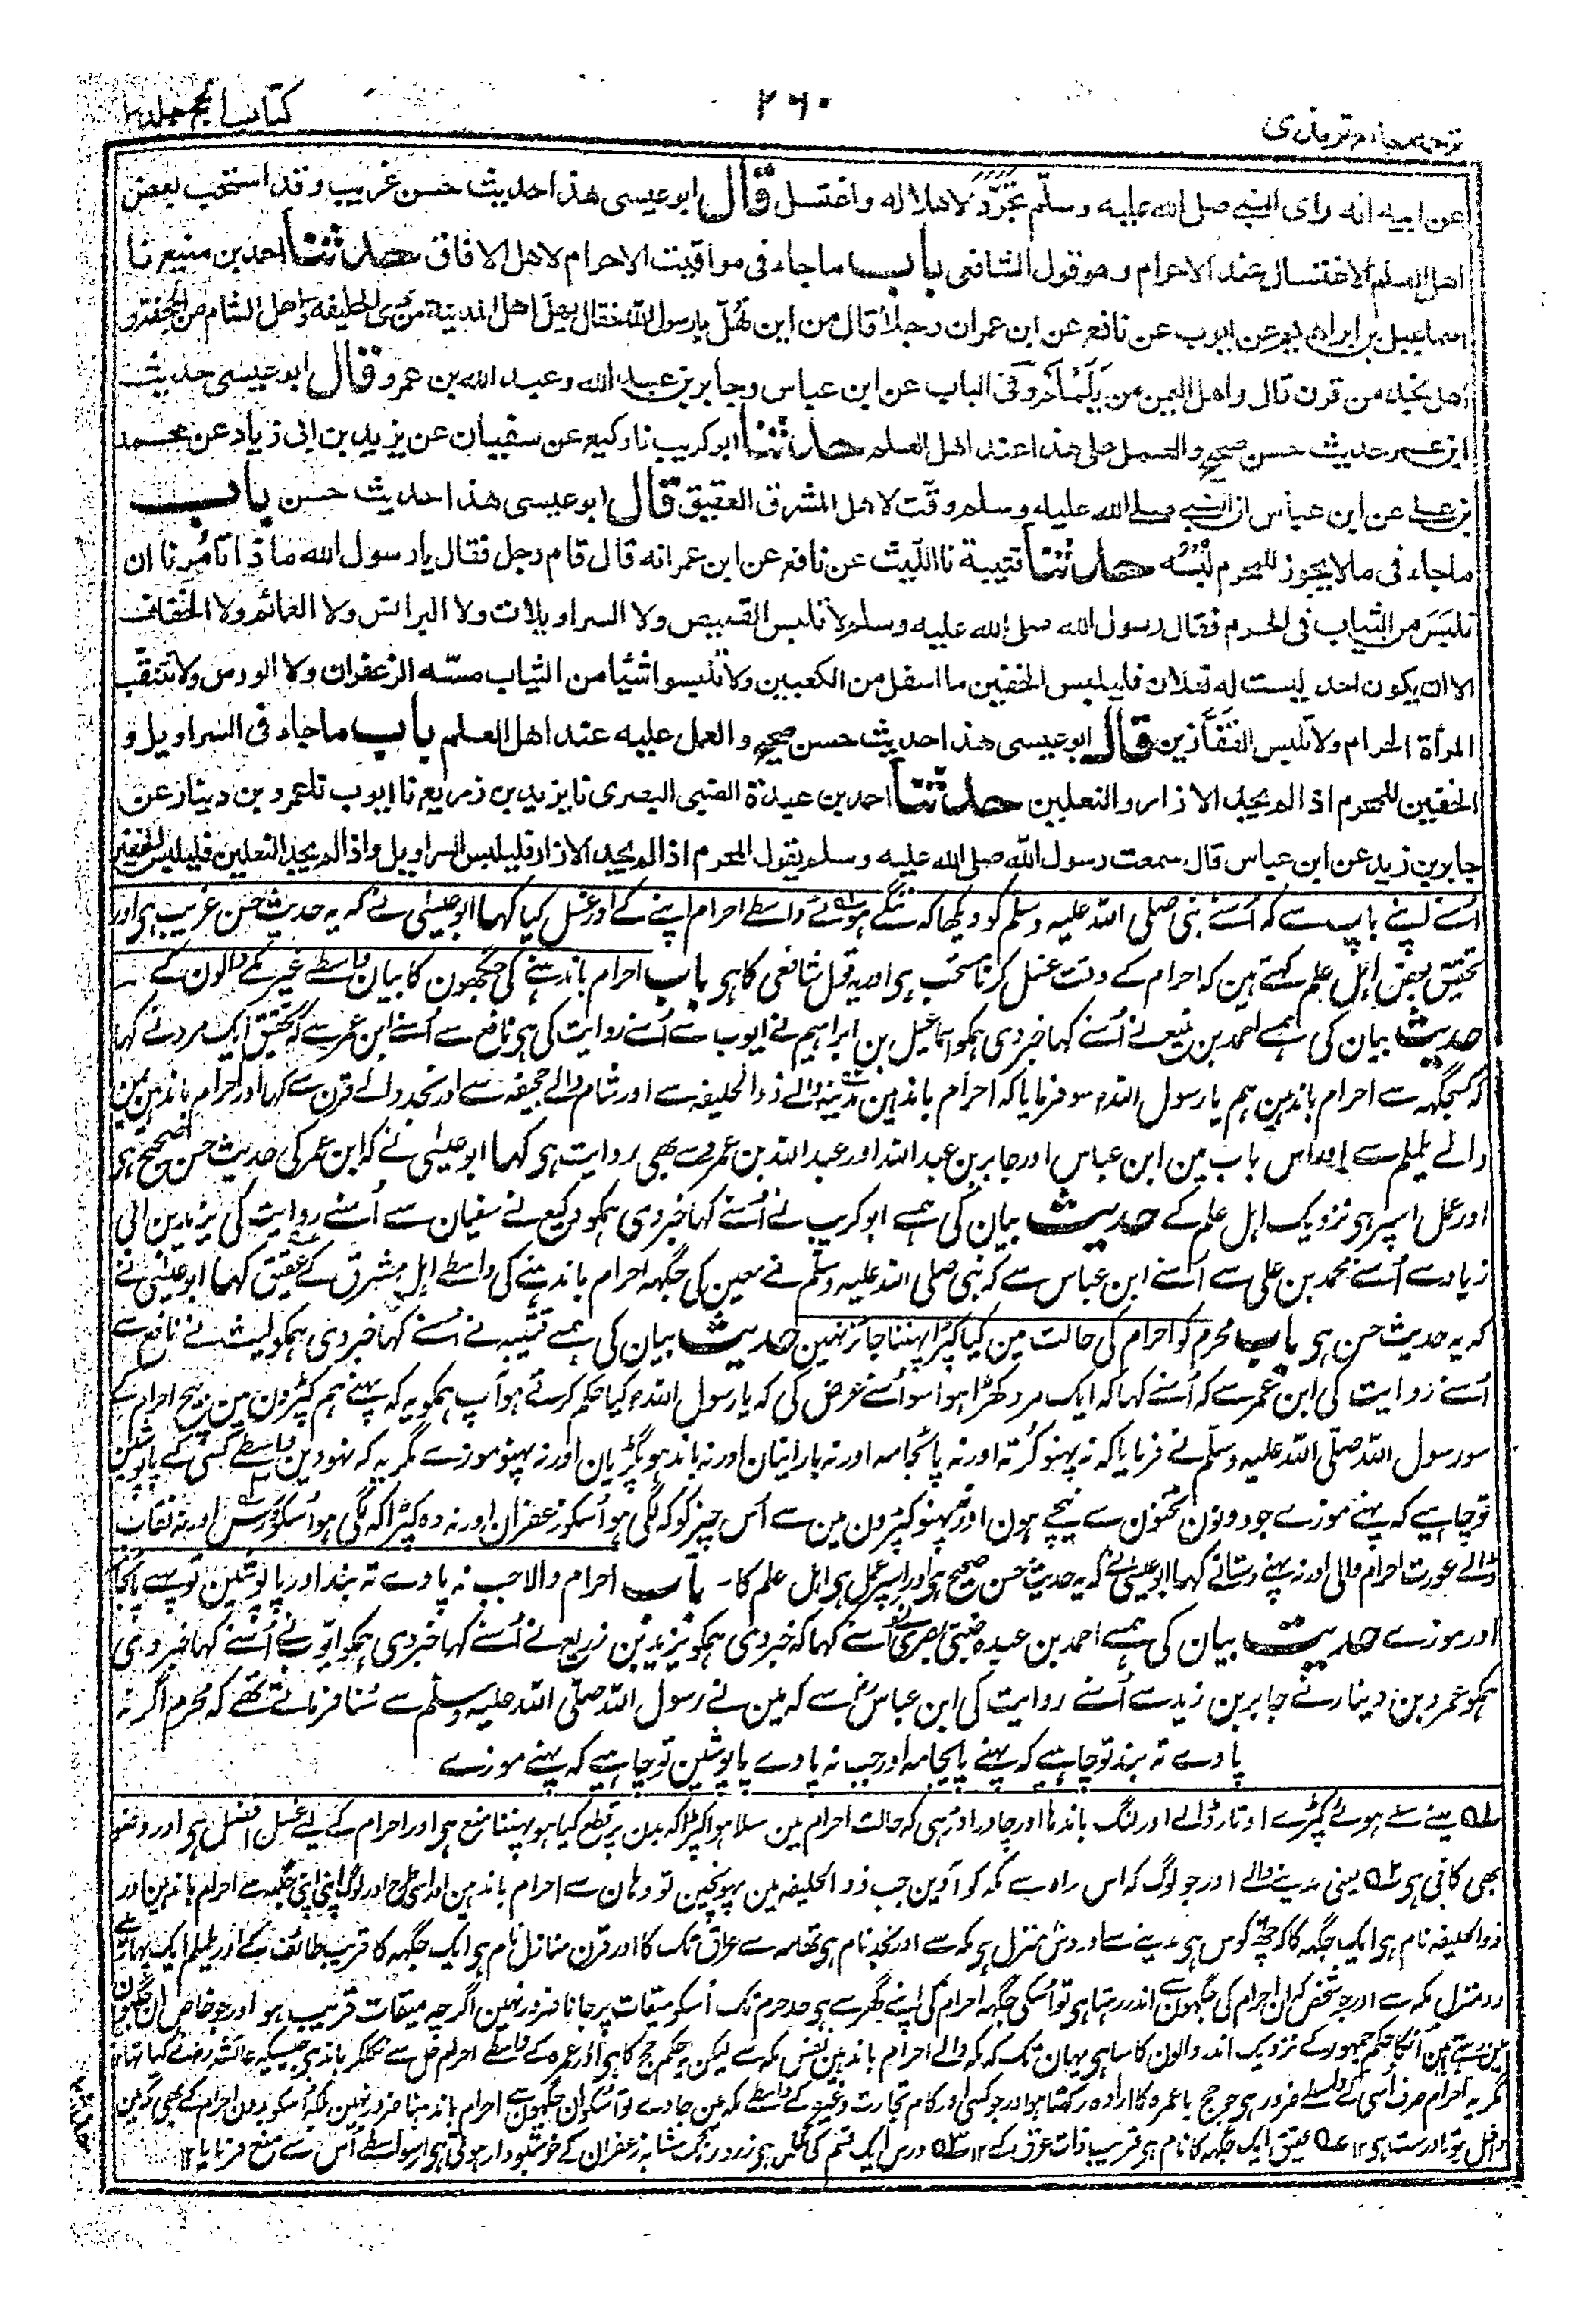 ترجمہ جامع ترمذی
۲۶۰
کتاب الحج جلد ۱
عن ابیه انه رای النبی صلی الله علیه وسلم تجرّد لاهلاله واغتسل قال ابو عیسی هذا حدیث حسن غریب وقد استحب بعض
اهل العلم الاغتسال عند الاحرام وهو قول الشافعی باب ماجاء فی مواقیت الاحرام لاهل الافاق حدثنا احمد بن منیع نا
اسماعیل بن ابراهیم عن ایوب عن نافع عن ابن عمر ان رجلا قال من این نُهِلّ یا رسول الله فقال یهل اهل المدینة من ذی الحلیفة واهل الشام من الجحفة و
اهل نجد من قرن قال واهل الیمن من یَلَمْلَم وفی الباب عن ابن عباس وجابر بن عبد الله وعبد الله بن عمرو قال ابو عیسی حدیث
ابن عمر حدیث حسن صحیح والعمل علی هذا عند اهل العلم حدثنا ابو کریب نا وکیع عن سفیان عن یزید بن ابی زیاد عن محمد
بن علی عن ابن عباس ان النبی صلے الله علیه وسلم وقّت لاهل المشرق العقیق قال ابو عیسی هذا حدیث حسن باب
ماجاء فی مالا یجوز للمحرم لبسه حدثنا قتیبة نا اللیث عن نافع عن ابن عمر انه قال قام رجل فقال یا رسول الله ماذا تأمُرنا ان
نلبَسَ من الثیاب فی الحرم فقال رسول الله صلی الله علیه وسلم لا تلبس القمیص ولا السراویلات ولا البرانس ولا العمائم ولا الخفاف
الا ان یکون احد لیست له نعلان فلیلبس الخفین ما اسفل من الکعبین ولا تلبسوا شیئا من الثیاب مسّه الزعفران ولا الورس ولا تتنقّب
المرأة الحرام ولا تلبس القُفَّازین قال ابو عیسی هذا حدیث حسن صحیح والعمل علیه عند اهل العلم باب ماجاء فی السراویل و
الخفین للمحرم اذا لم یجد الازار والنعلین حدثنا احمد بن عبدة الضبی البصری نا یزید بن زریع نا ایوب نا عمرو بن دینار عن
جابر بن زید عن ابن عباس قال سمعت رسول الله صلی الله علیه وسلم یقول المحرم اذا لم یجد الازار فلیلبس السراویل واذا لم یجد النعلین فلیلبس الخفین
اُسنے اپنے باپ سے کہ اُسنے نبی صلی اللہ علیہ وسلم کو دیکھا کہ ننگے ہوئے واسطے احرام اپنے کے اور غسل کیا کہا ابو عیسٰی نے کہ یہ حدیث حسن غریب ہی اور
تحقیق بعض اہل علم کہتے ہین کہ احرام کے وقت غسل کرنا مستحب ہی اور یہ قول شافعی کا ہی باب احرام باندہنے کی جگہون کا بیان واسطے غیر مکے والون کے
حدیث بیان کی ہمسے احمد بن منیع نے اُسنے کہا خبر دی ہمکو اسماعیل بن ابراہیم نے ایوب سے اُسنے روایت کی ہی نافع سے اُسنے ابن عمر سے کہ تحقیق ایک مرد نے کہا
کہ کسجگہہ سے احرام باندہین ہم یا رسول اللہ سو فرمایا کہ احرام باندہین مدینہ والے ذوالحلیفہ سے اور شام والے جحیفہ سے اور نجد والے قرن سے کہا اور احرام باندہین یمن
والے یلملم سے اور اس باب مین ابن عباس اور جابر بن عبداللہ اور عبداللہ بن عمرو سے بھی روایت ہی کہا ابو عیسٰی نے کہ ابن عمر کی حدیث حسن صحیح ہی
اور عمل اسپر ہی نزدیک اہل علم کے حدیث بیان کی ہمسے ابو کریب نے اُسنے کہا خبر دی ہمکو وکیع نے سفیان سے اُسنے روایت کی یزید بن ابی
زیاد سے اُسنے محمد بن علی سے اُسنے ابن عباس سے کہ نبی صلی اللہ علیہ وسلم نے معین کی جگہہ احرام باندہنے کی واسطے اہل مشرق کے عقیق کہا ابو عیسٰی نے
کہ یہ حدیث حسن ہی باب محرم کو احرام کی حالت مین کیا کپڑا پہننا جائز نہین حدیث بیان کی ہمسے قتیبہ نے اُسنے کہا خبر دی ہمکو لیث نے نافع سے
اُسنے روایت کی ابن عمر سے کہ اُسنے کہا کہ ایک مرد کھڑا ہوا سو اُسنے عرض کی کہ یا رسول اللہ کیا حکم کرتے ہو آپ ہمکو یہ کہ پہنے ہم کپڑون مین بیچ احرام کے
سو رسول اللہ صلّی اللہ علیہ وسلّم نے فرمایا کہ نہ پہنو کُرتہ اور نہ پائجامہ اور نہ بارانیان اور نہ باندہو پگڑیان اور نہ پہنو موزے مگر یہ کہ نہووین واسطے کسی کے پاپوشین
تو چاہیے کہ پہنے موزے جو دونون ٹخنون سے نیچے ہون اور نہ پہنو کپڑون مین سے اُس چیز کو کہ لگی ہو اُسکو زعفران اور نہ وہ کپڑا کہ لگی ہو اُسکو وَرس اور نہ نقاب
ڈالے عورت احرام والی اور نہ پہنے دستانے کہا ابو عیسٰی نے کہ یہ حدیث حسن صحیح ہی اور اسپر عمل ہی اہل علم کا۔ باب احرام والا جب نہ پاوے تہ بند اور پاپوشین تو پہنے پائجامہ
اور موزے حدیث بیان کی ہمسے احمد بن عبدہ ضبّی بصری نے اُسنے کہا کہ خبر دی ہمکو یزید بن زریع نے اُسنے کہا خبر دی ہمکو ایّوب نے اُسنے کہا خبر دی
ہمکو عمرو بن دینار نے جابر بن زید سے اُسنے روایت کی ابن عباسؓ سے کہ مین نے رسول اللہ صلّی اللہ علیہ وسلّم سے سُنا فرماتے تھے کہ مُحرم اگر نہ
پاوے تہ بند تو چاہیے کہ پہنے پائجامہ اور جب نہ پاوے پاپوشین تو چاہیے کہ پہنے موزے
ف۱ یعنے سئے ہوئے کپڑے اوتار ڈالے اور لنگ باندہا اور چادر اوڑہی کہ حالت احرام مین سلا ہوا کپڑا کہ بدن پر قطع کیا ہو پہننا منع ہی اور احرام کے لیے غسل افضل ہی اور وضو
بھی کافی ہی ف۲ یعنی مدینے والے اور جو لوگ کہ اس راہ سے مکہ کو آوین جب ذوالحلیفہ مین پہونچین تو وہان سے احرام باندہین اور اسی طرح اور لوگ اپنی اپنی جگہہ سے احرام باندہین اور
ذوالحلیفہ نام ہی ایک جگہہ کا کہ چھہ کوس ہی مدینے سے اور دس منزل ہی مکہ سے اور نجد نام ہی تہامہ سے عراق تک کا اور قرن منازل نام ہی ایک جگہہ کا قریب طائف کے اور یلملم ایک پہاڑ ہے
دو منزل مکہ سے اور جو شخص کہ ان احرام کی جگہون سے اندر رہتا ہی تو اُسکی جگہہ احرام کی اپنے گھر سے ہی حد حرم تک اُسکو میقات پر جانا ضرور نہین اگرچہ میقات قریب ہو اور جو خاص ان جگہون
مین رہتے ہین اُنکا حکم جمہور کے نزدیک اندر والون کا سا ہی یہان تک کہ مکہ والے احرام باندہین نفس مکہ سے لیکن یہ حکم حج کا ہی اور عمرہ کے واسطے احرام حل سے نکلکر باندہے جیسیکہ عائشہ رضی نے کیا تھا
مگر یہ احرام صرف اُسی کے واسطے ضرور ہی جو حج یا عمرہ کا ارادہ رکھتا ہو اور جو کسی اور کام تجارت وغیرہ کے واسطے مکہ مین جاوے تو اُسکو ان جگہون سے احرام باندہنا ضرور نہین بلکہ اُسکو بدون احرام کے بھی مکہ مین
داخل ہونا درست ہی ۱۲ ف۳ عقیق ایک جگہہ کا نام ہی قریب ذات عرق کے ۱۲ ف۴ ورس ایک قسم کی گھاس ہی زرد رنگ مشابہ زعفران کے خوشبودار ہوتی ہی اسواسطے اُس سے منع فرمایا ۱۲